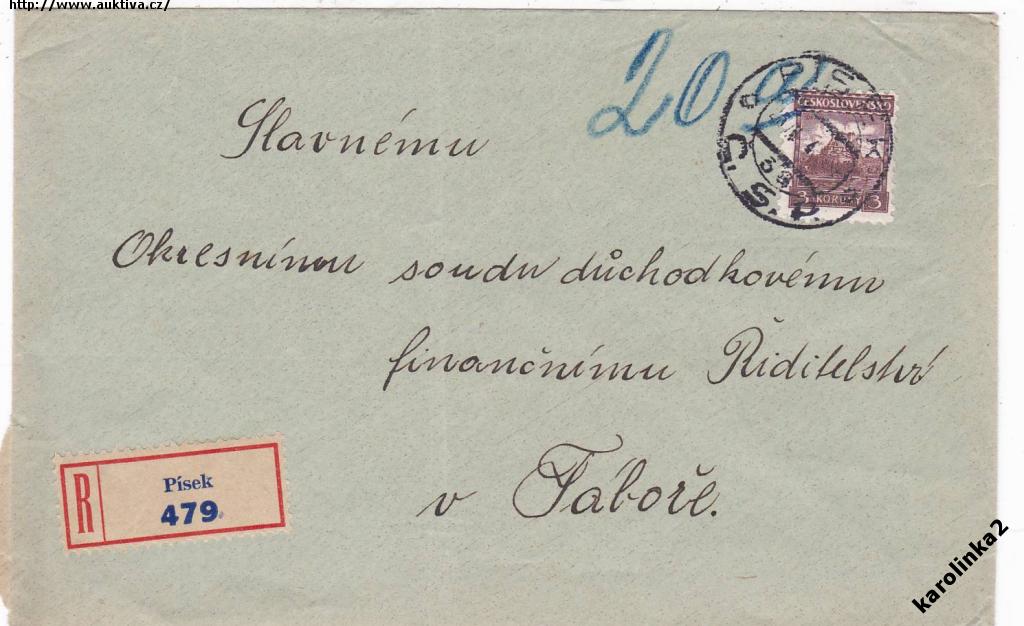 http://www.auktiva.cz/
20 g
PÍSEK
ČESKOSLOVENSKO
3 KORUNY 3
Č.S.
Slavnému
Okresnímu soudu důchodkovému
finančnímu Ředitelství
v Táboře.
R
Písek
479
karolinka2